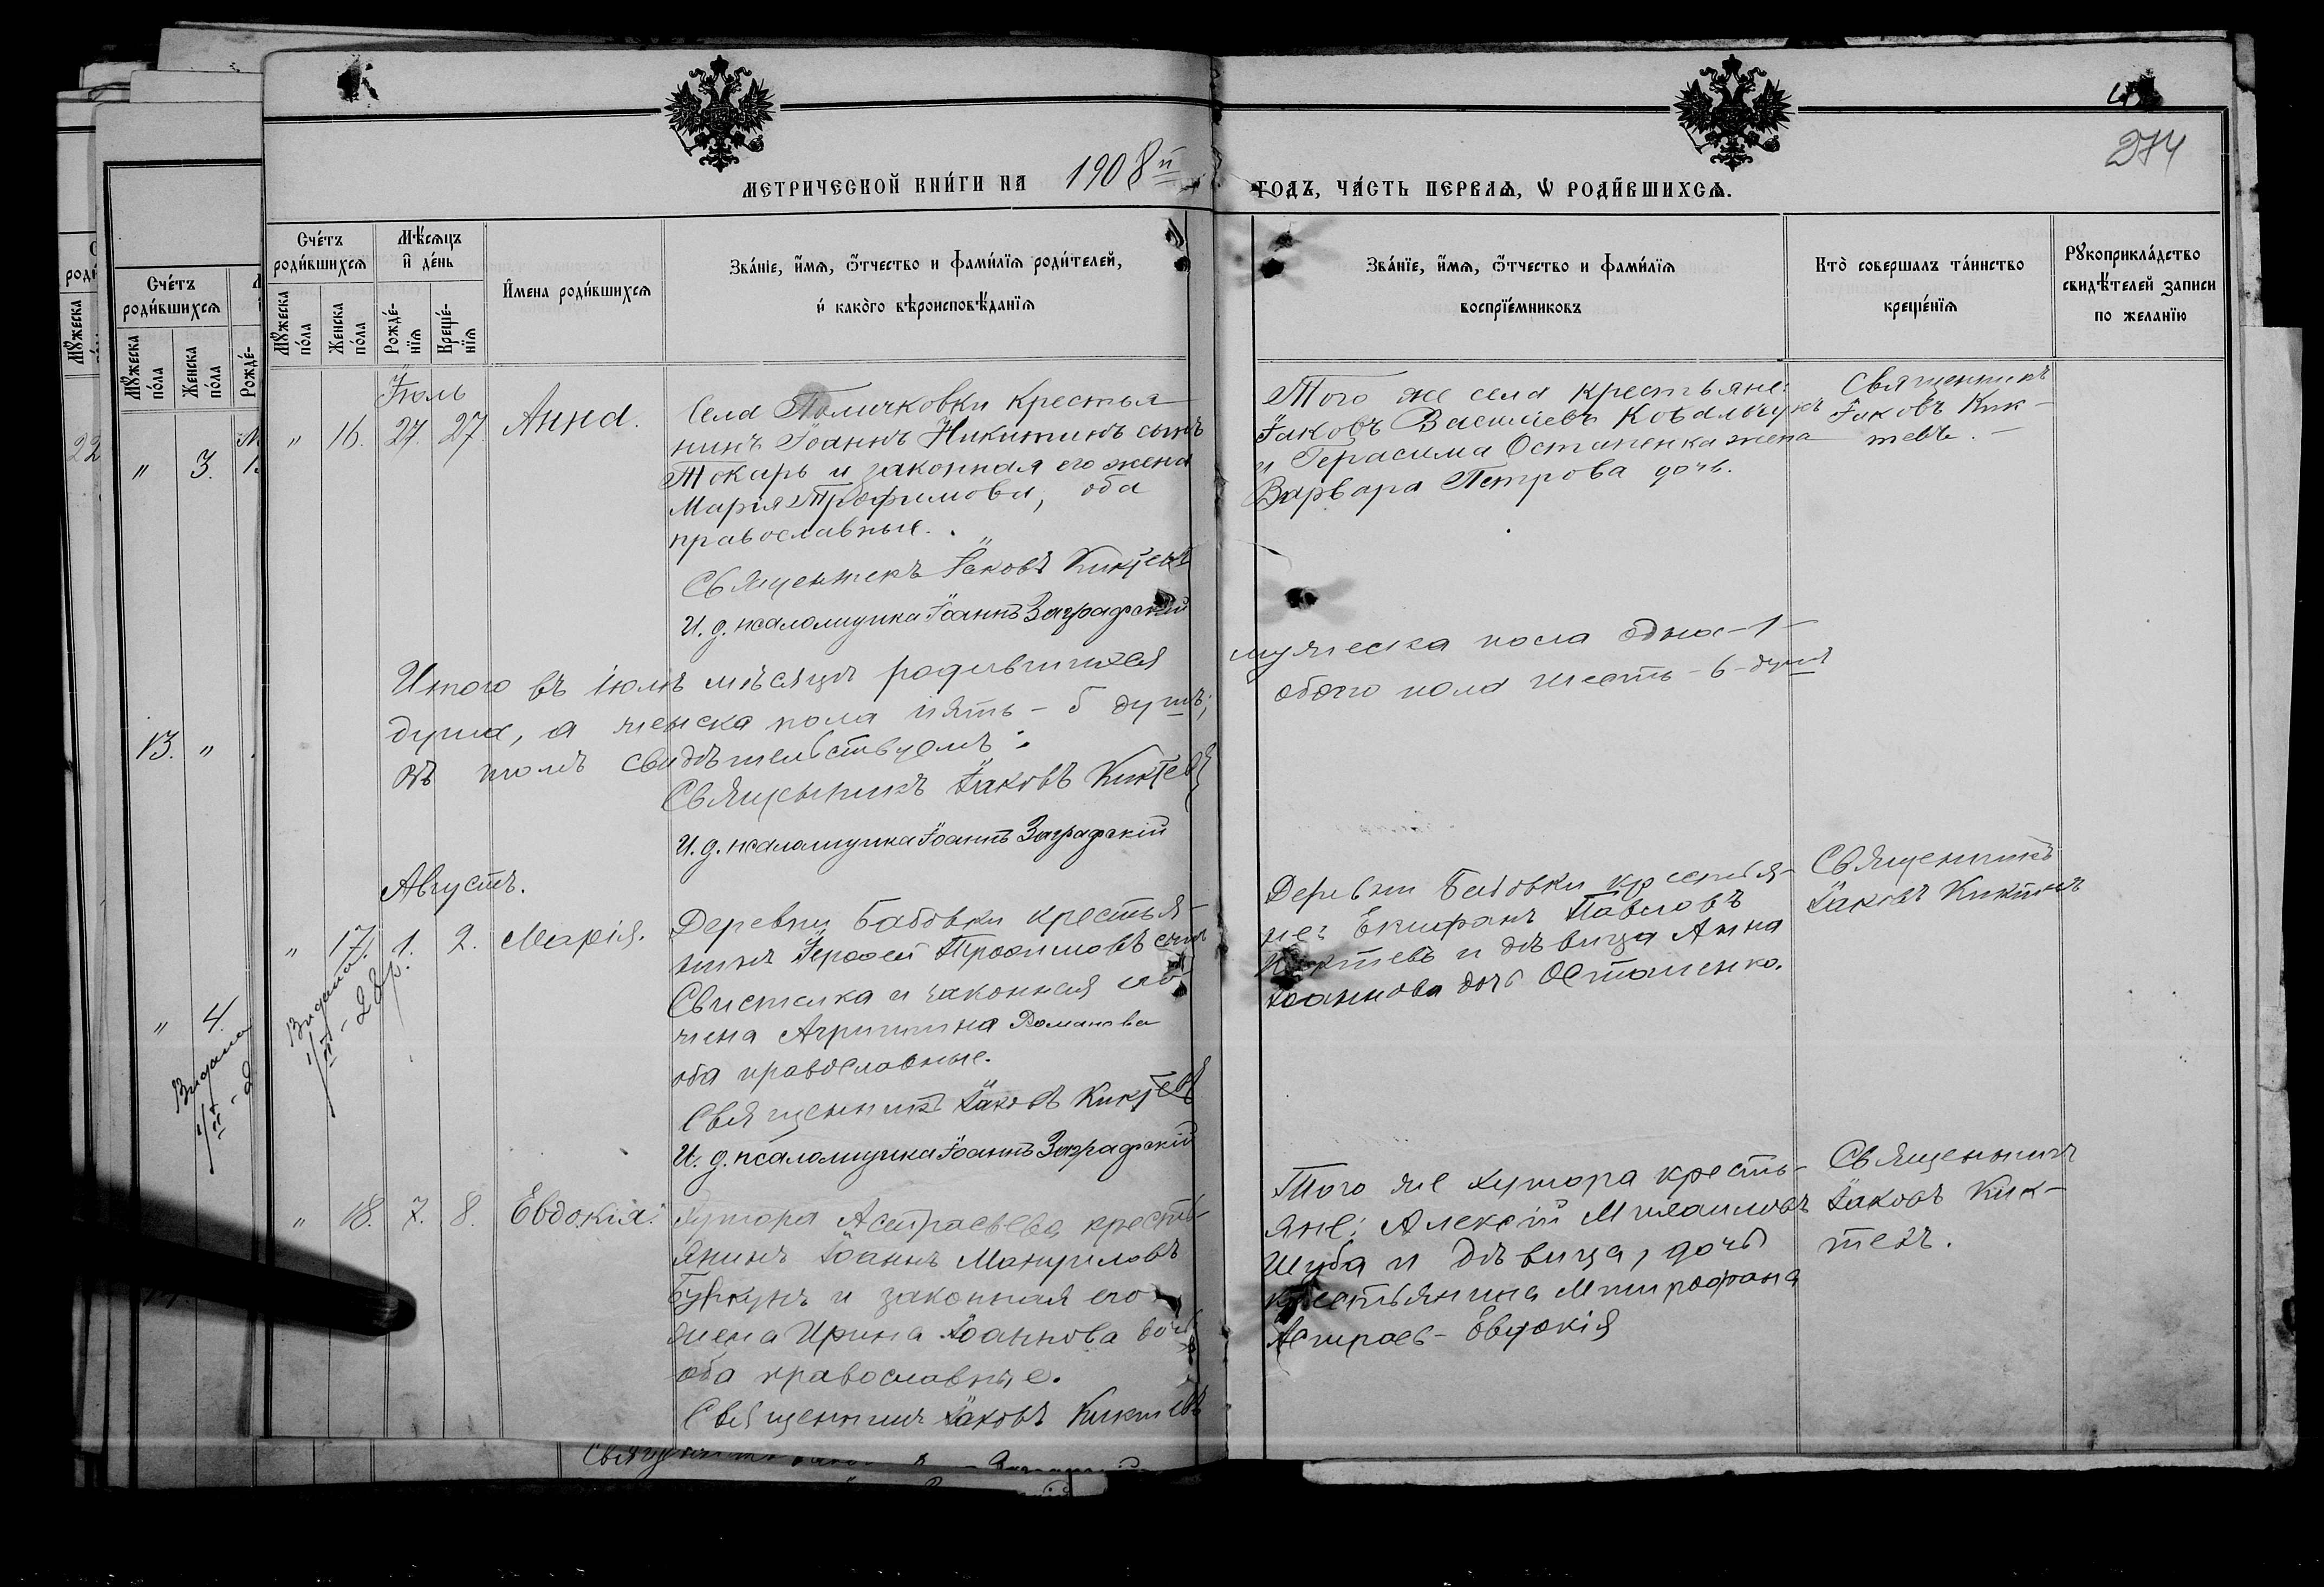 274
МЕТРИЧЕСКОЙ КНИ́ГИ НА 1908й ГОДЪ, ЧА́СТЬ ПЕРВАѦ, Ѡ РОДИ́ВШИХСѦ.
Сче́тъ роди́вшихсѧ
Мꙋ́жеска по́ла
Женска по́ла
Мѣ́сѧцъ и҆ де́нь
Рожде́-нїѧ
Креще́-нїѧ
И҆мена роди́вшихсѧ
Зва́нїе, и҆́мѧ, ѻ҆́тчество и фами́лїѧ роди́телей,
и҆ како́гѡ вѣроисповѣ́данїѧ
Зва́нїе, и҆́мѧ, ѻ҆́тчество и фами́лїѧ
воспрїе́мниковъ
Кто̀ совершалъ та́инство
креще́нїѧ
Рꙋкоприкла́дство
свидѣ́телей записи
по желанїю
Іюль
" 16. 27. 27. Анна.
Села Поличковки крестья-
нинъ Іоаннъ Никитинъ сынъ
Токарь и законная его жена
Марія Трофимова, оба
православные.
Священникъ Іаковъ Киктевъ
И. д. псаломщика Іоаннъ Заграфскій
Того же села крестьяне:
Іаковъ Васильевъ Ковальчукъ
и Герасима Остапенка жена
Варвара Петрова дочь.
Священникъ
Іаковъ Кик-
тевъ.
Итого въ Іюлѣ мѣсяцѣ родившихся мужеска пола одна -1-
душа, а женска пола пять - 5 душъ; обоего пола шесть - 6 - душъ
въ томъ свидѣтельствуемъ:
Священникъ Іаковъ Киктевъ
И. д. псаломщика Іоаннъ Заграфскій
Августъ.
" 17. 1. 2. Марія.
Видана
Деревни Бабовки крестья-
нинъ Трофимовъ сынъ
Свистелка и законная его
жена Агрипина Романова
оба православные.
Священникъ Іаковъ Киктевъ
И. д. псаломщика Іоаннъ Заграфскій
Деревни Бабовки крестья-
не: Епифанъ Павловъ
Киктевъ и дѣвица Анна
Іоаннова дочь Остапенко.
Священникъ
Іаковъ Киктевъ
" 18. 7. 8. Евдокія.
Хутора Астраева крестья-
янинъ Іоаннъ Мануиловъ
и законная его
жена Ирина Іоаннова дочь
оба православные.
Священникъ Іаковъ Киктевъ
Того же хутора кресть-
яне: Алексій Михаиловъ
Шуба и дѣвица, дочь
крестьянина Митрофана
Астраев- Евдокія
Священникъ
Іаковъ Кик-
тевъ.
Сче́тъ
роди́вшихсѧ
Мꙋ́жеска по́ла
Женска по́ла
Рожде́-
22
" 3.
13. "
" 4.
Видана